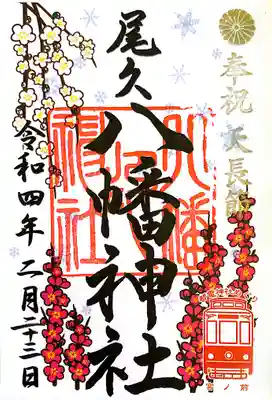 奉祝 天長節
尾久
八幡神社
令和四年 二月二十三日
宮ノ前